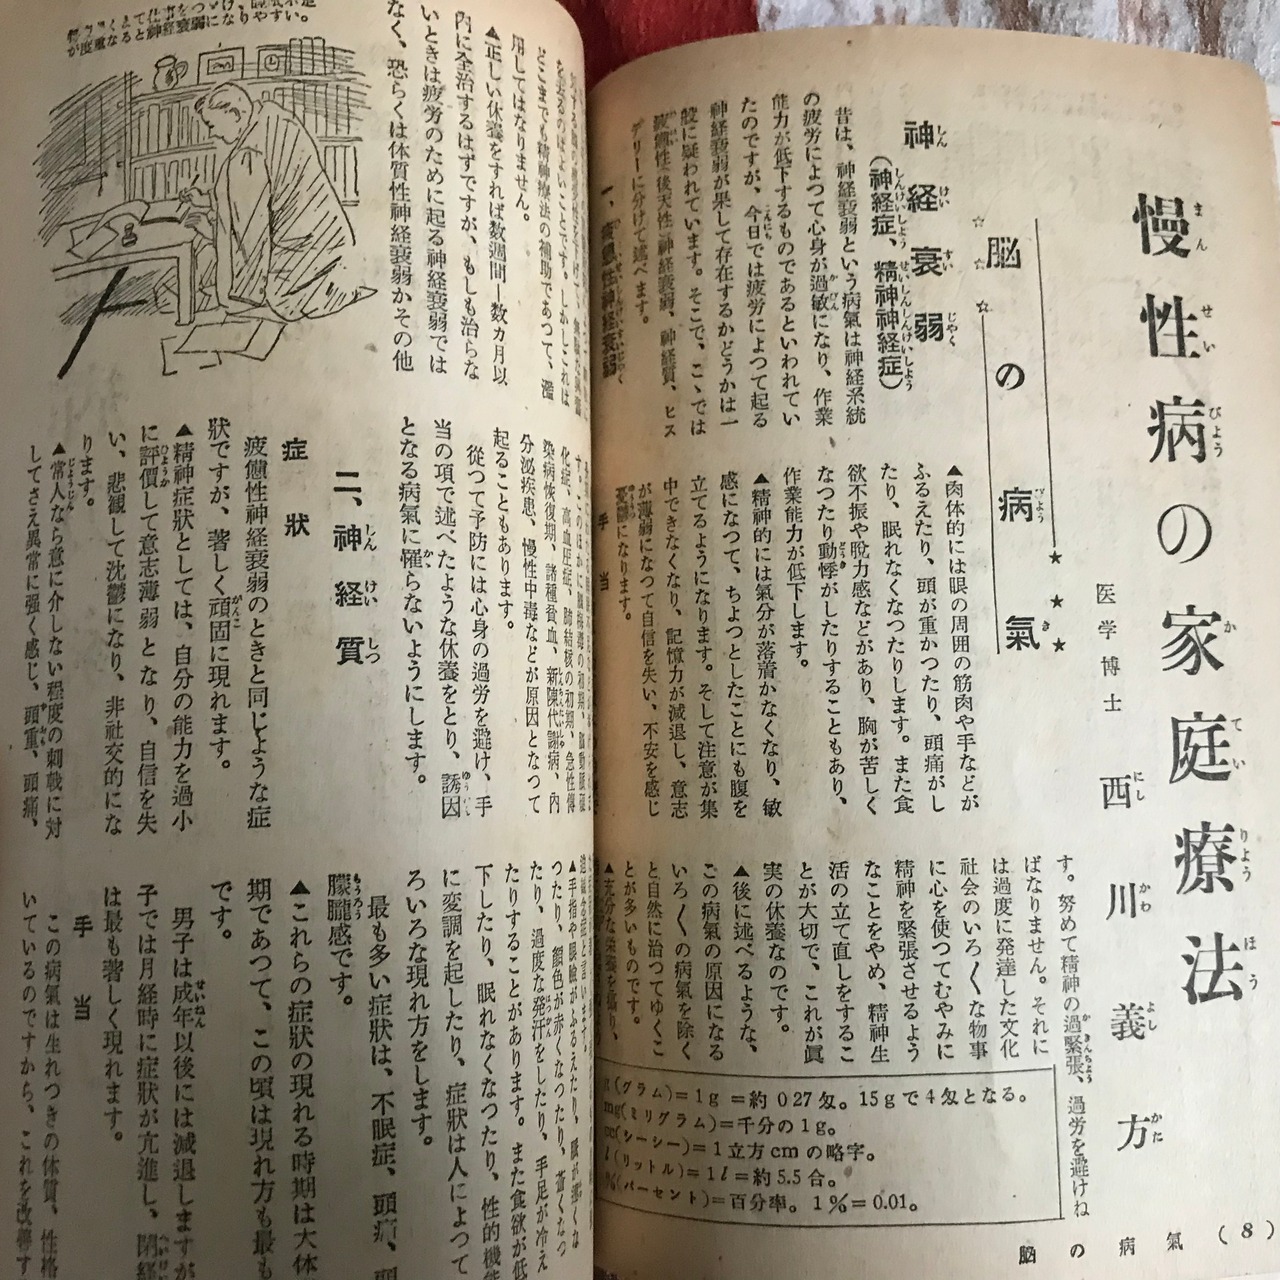 慢性病の家庭療法
医学博士 西川義方
脳の病氣
神経衰弱
(神経症、精神神経症)
昔は、神経衰弱という病氣は神経系統
の疲労によつて心身が過敏になり、作業
能力が低下するものであるといわれてい
たのですが、今日では疲労によつて起る
神経衰弱が果して存在するかどうかは一
般に疑われています。そこで、こゝでは
疲憊性(後天性)神経衰弱、神経質、ヒス
テリーに分けて述べます。
一、疲憊性神経衰弱
▲肉体的には眼の周囲の筋肉や手などが
ふるえたり、頭が重かつたり、頭痛がし
たり、眠れなくなつたりします。また食
欲不振や脱力感などがあり、胸が苦しく
なつたり動悸がしたりすることもあり、
作業能力が低下します。
▲精神的には氣分が落着かなくなり、敏
感になつて、ちよつとしたことにも腹を
立てるようになります。そして注意が集
中できなくなり、記憶力が減退し、意志
が薄弱になつて自信を失い、不安を感じ
憂鬱になります。
手当
す。努めて精神の過緊張、過労を避けね
ばなりません。それに
は過度に発達した文化
社会のいろ〱な物事
に心を使つてむやみに
精神を緊張させるよう
なことをやめ、精神生
活の立て直しをするこ
とが大切で、これが眞
実の休養なのです。
▲後に述べるような、
この病氣の原因になる
いろ〱の病氣を除く
と自然に治つてゆくこ
とが多いものです。
▲充分な栄養を
g(グラム)=1g=約0.27匁。15gで4匁となる。
mg(ミリグラム)=千分の1g。
cc(シーシー)=1立方cmの略字。
l(リットル)=1l=約5.5合。
%(パーセント)=百分率。1%=0.01。
脳の病氣 (8)
を求るのはよいことです。しかしこれは
どこまでも精神療法の補助であつて、濫
用してはなりません。
▲正しい休養をすれば数週間—数カ月以
内に全治するはずですが、もしも治らな
いときは疲労のために起る神経衰弱では
なく、恐らくは体質性神経衰弱かその他
が度重なると神経衰弱になりやすい。
化症、高血圧症、肺結核の初期、急性傳
染病恢復期、諸種貧血、新陳代謝病、内
分泌疾患、慢性中毒などが原因となつて
起ることもあります。
從つて予防には心身の過労を避け、手
当の項で述べたような休養をとり、誘因
となる病氣に罹らないようにします。
二、神経質
症狀
疲憊性神経衰弱のときと同じような症
狀ですが、著しく頑固に現れます。
▲精神症狀としては、自分の能力を過小
に評價して意志薄弱となり、自信を失
い、悲観して沈鬱になり、非社交的にな
ります。
▲常人なら意に介しない程度の刺戟に対
してさえ異常に強く感じ、頭重、頭痛、
▲手指や眼瞼がふるえたり、脈が速くな
つたり、顔色が赤くなつたり、蒼くなつ
たり、過度な発汗をしたり、手足が冷え
たりすることがあります。また食欲が低
下したり、眠れなくなつたり、性的機能
に変調を起したり、症狀は人によつて
ろいろな現れ方をします。
最も多い症狀は、不眠症、頭痛、頭
朦朧感です。
▲これらの症狀の現れる時期は大体
期であつて、この頃は現れ方も最も
です。
男子は成年以後には減退しますが
子では月経時に症狀が亢進し、閉経
は最も著しく現れます。
手当
この病氣は生れつきの体質、性格
いているのですから、これを改善す